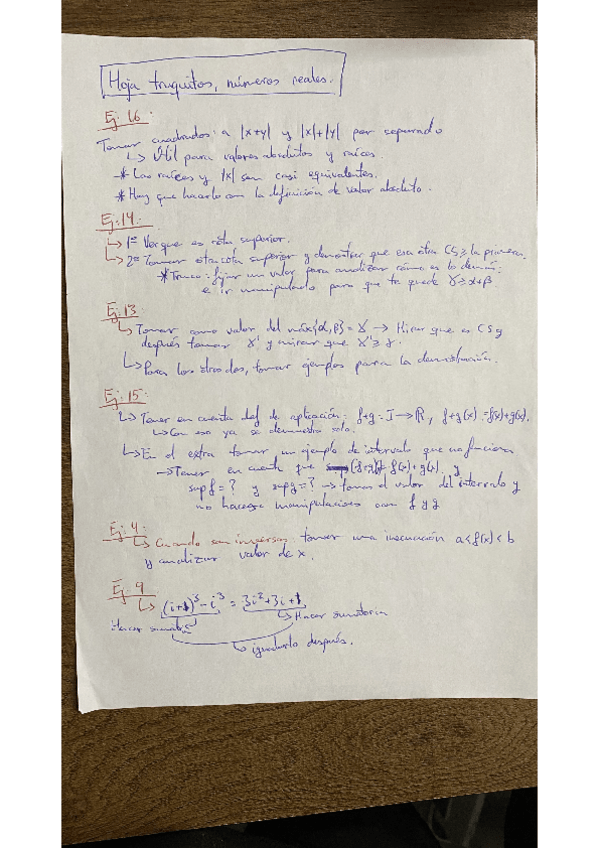 Hoja truquitos, números reales.
Ej: 16:
Tomar cuadrados: a |x+y| y |x|+|y| por separado
↳ Útil para valores absolutos y raíces.
* Las raíces y |x| son casi equivalentes.
* Hay que hacerlo con la definición de valor absoluto.
Ej: 14:
↳ 1º Ver que es cota superior.
↳ 2º Tomar otra cota superior y demostrar que esa otra CS ≥ la primera.
* Truco: fijar un valor para analizar cómo es lo demás
e ir manipulando para que te quede γ ≥ α+β
Ej: 13
↳ Tomar como valor del máx{α, β} = γ → Mirar que es CS y
después tomar γ' y mirar que γ' ≥ γ.
↳ Para los otros dos, tomar ejemplos para la demostración.
Ej: 15
↳ Tener en cuenta def de aplicación: f+g: I → ℝ, f+g(x) = f(x)+g(x).
↳ Con eso ya se demuestra solo.
↳ En el extra tomar un ejemplo de intervalo que no funciona
→ Tener en cuenta que (f+g)(x) = f(x)+g(x) y
sup f = ? y sup g = ? → tomar el valor del intervalo y
no hacerse manipulaciones con f y g
Ej: 4:
↳ Cuando son inversos tomar una inecuación a < f(x) < b
y analizar valor de x.
Ej: 9
↳ (i+1)³ - i³ = 3i² + 3i + 1
Hacer sumatorio ↳ Hacer sumatorio
↳ igualarlo después.